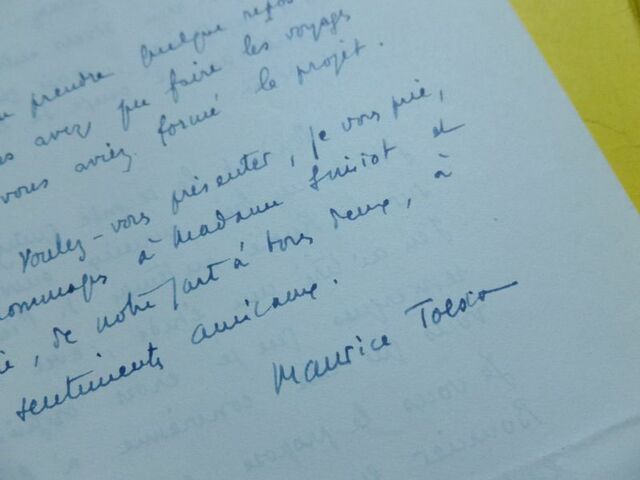 prendre quelque repos
avez pu faire les voyages
vous aviez formé le projet.
Voulez-vous présenter, je vous prie,
hommages à Madame et
, de notre part à tous deux, à
sentiments amicaux.
Maurice Toesca